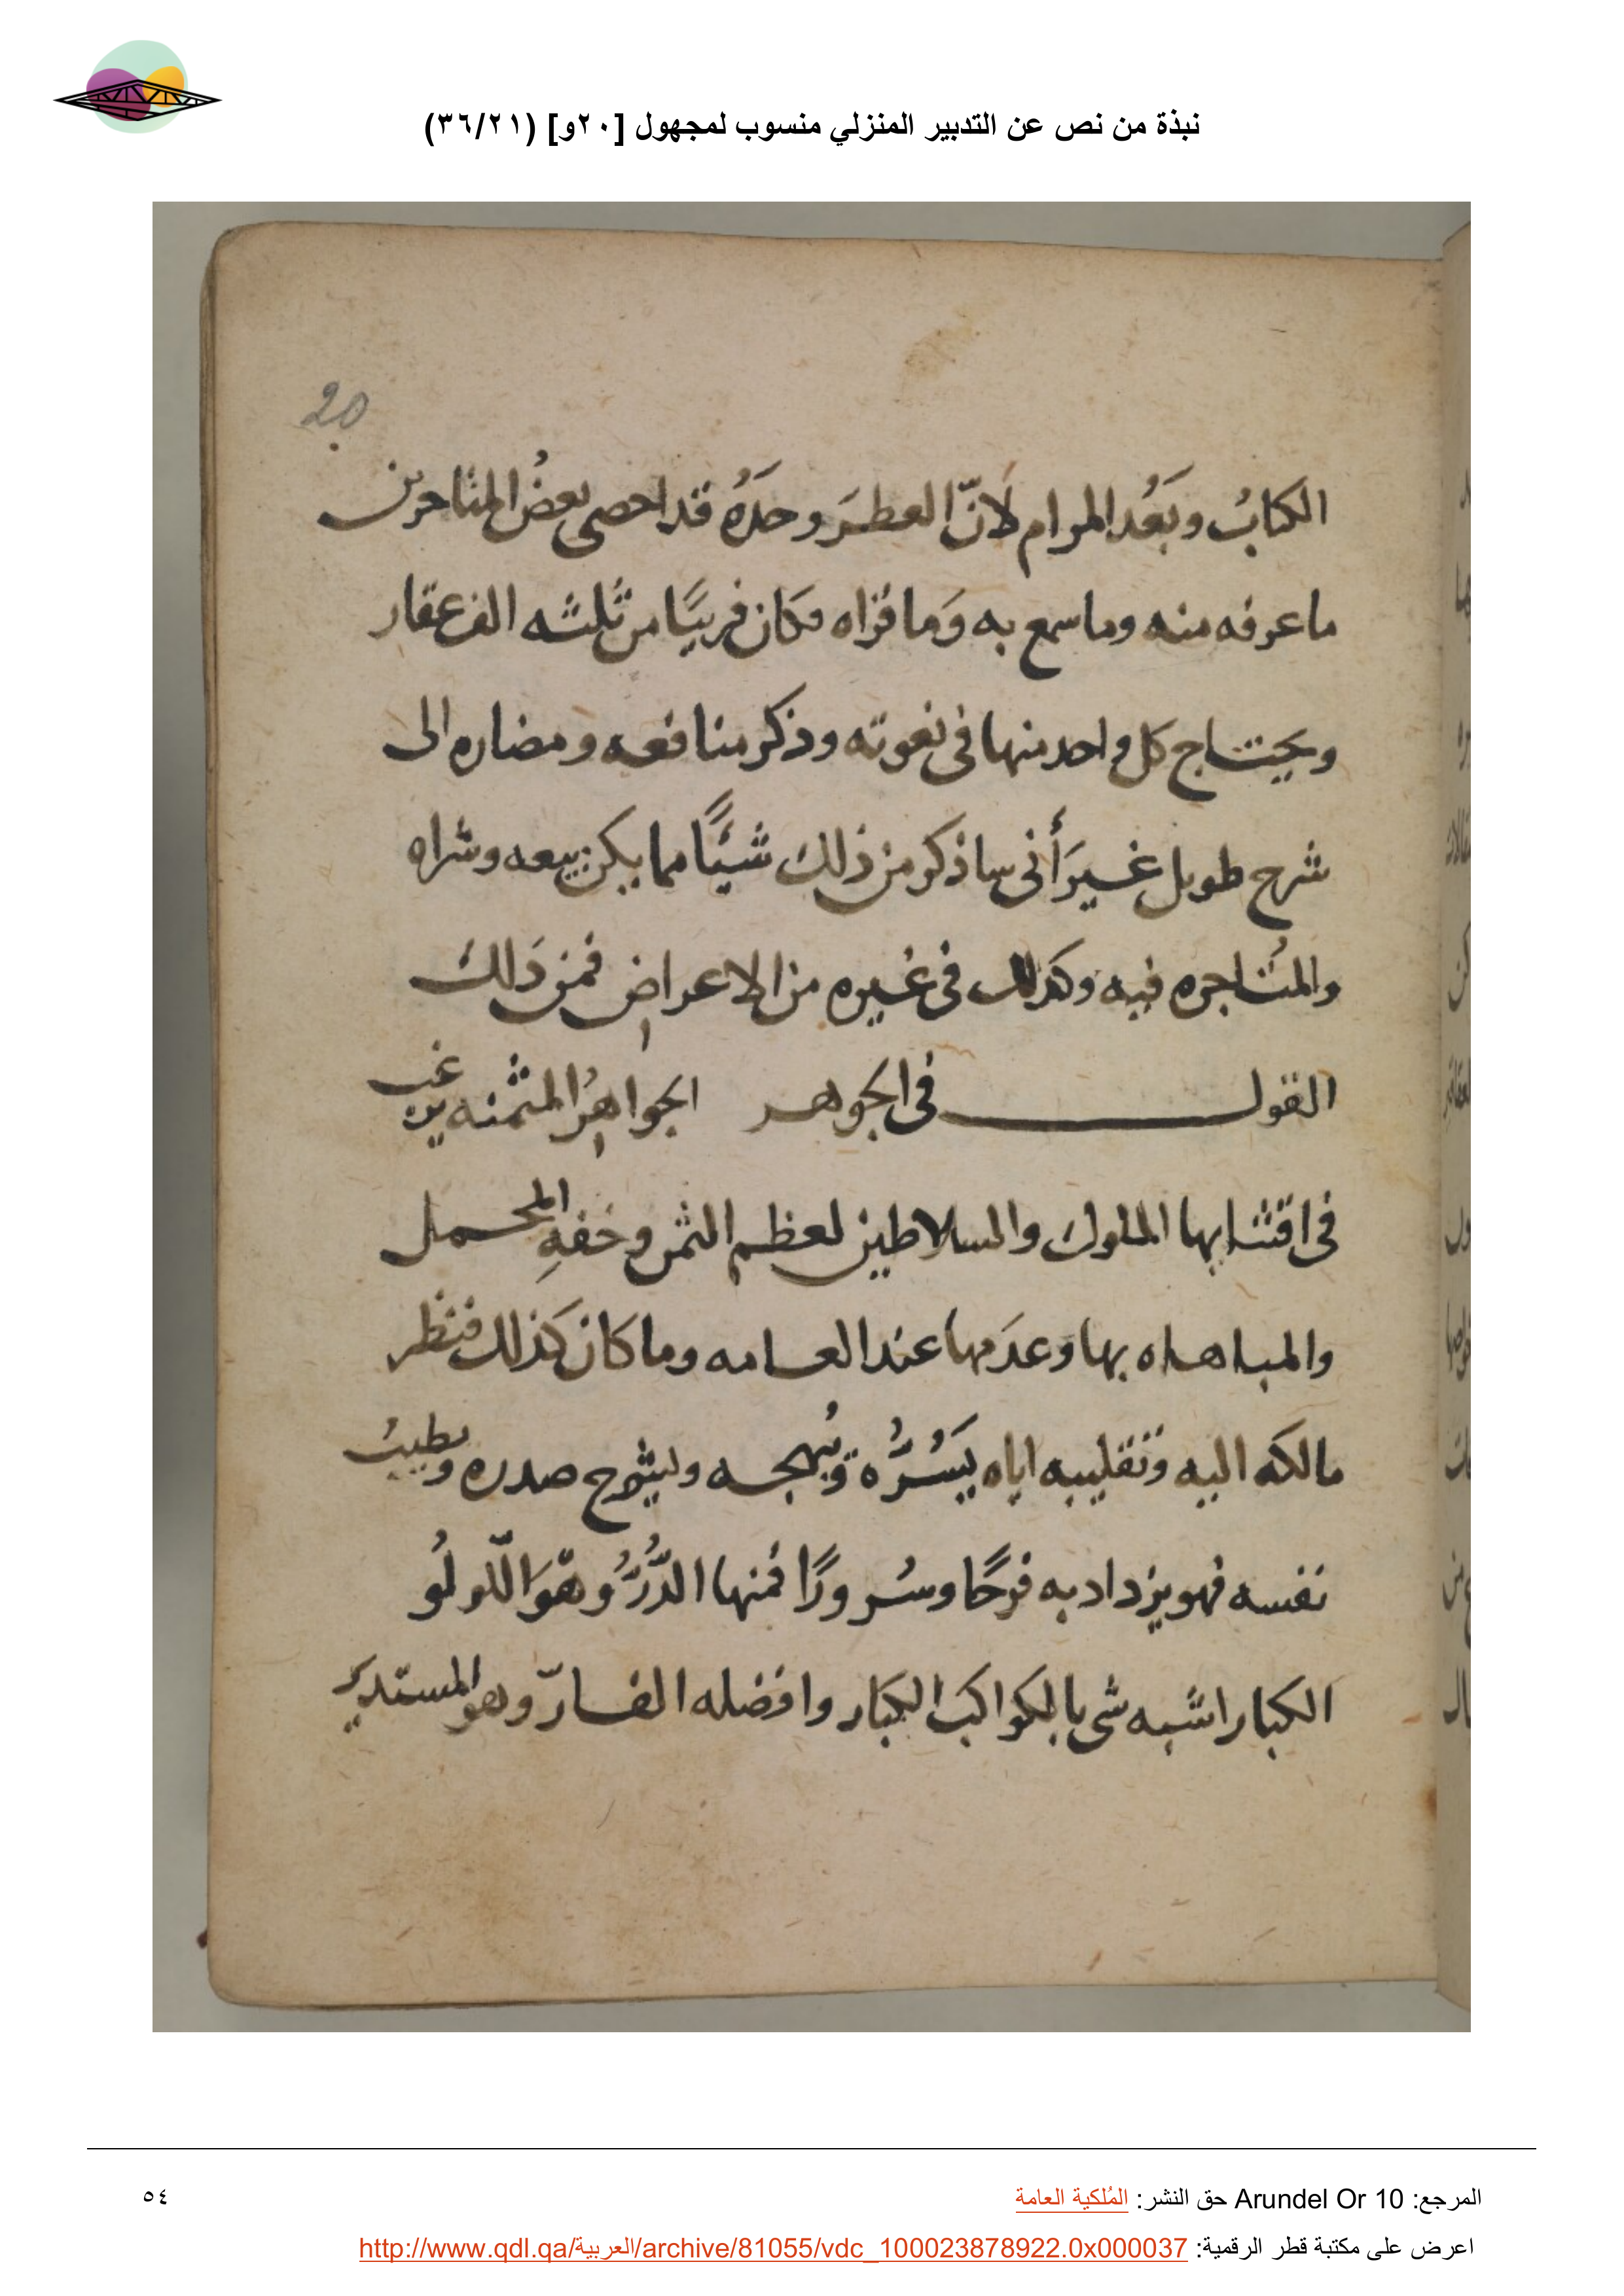 نبذة من نص عن التدبير المنزلي منسوب لمجهول [٢٠و] (٣٦/٢١)
20
الكتابُ وبَعُد المرام لانّ العطرَ وحدَهُ قد احصى بعضُ المتاخرين
ما عرفه منه وما سمع به وَما قراه فكان قريبًا من ثلثه الف عقار
ويحتاج كل واحد منها فى نعوته وذكر منافعه ومضاره الى
شرح طويل غيرَ أنى ساذكر من ذلك شيئًا مما يمكن بيعه وشراه
والمتاجره فيه وكذلك فى غيره من الاعراض فمن ذلك
القول فى الجوهر الجواهرُ المثمنه يرغب
فى اقتنايها الملوك والسلاطين لعظم الثمن وخفهِ المحمل
والمباهاه بها وعدَمها عند العامه وما كان كذلك فنظر
مالكه اليه وتقليبه اياه يَسُرُّه ويُبهجه ويثلج صدره ويطيبُ
نفسه فهو يزداد به فرحًا وسُرورًا فمنها الدُّرُّ وهوَ اللّولُو
الكبار اشبه شى بالكواكب الكبار وافضله الفارّ وهو المستدير
المرجع: Arundel Or 10 حق النشر: المُلكية العامة
٥٤
اعرض على مكتبة قطر الرقمية: http://www.qdl.qa/العربية/archive/81055/vdc_100023878922.0x000037